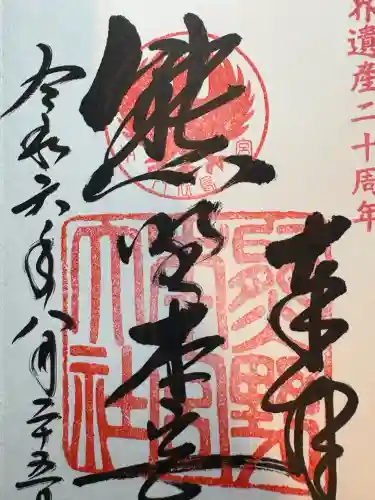 界遺産二十周年
奉拝
熊野本宮
令和六年八月二十五日
熊野本宮大社